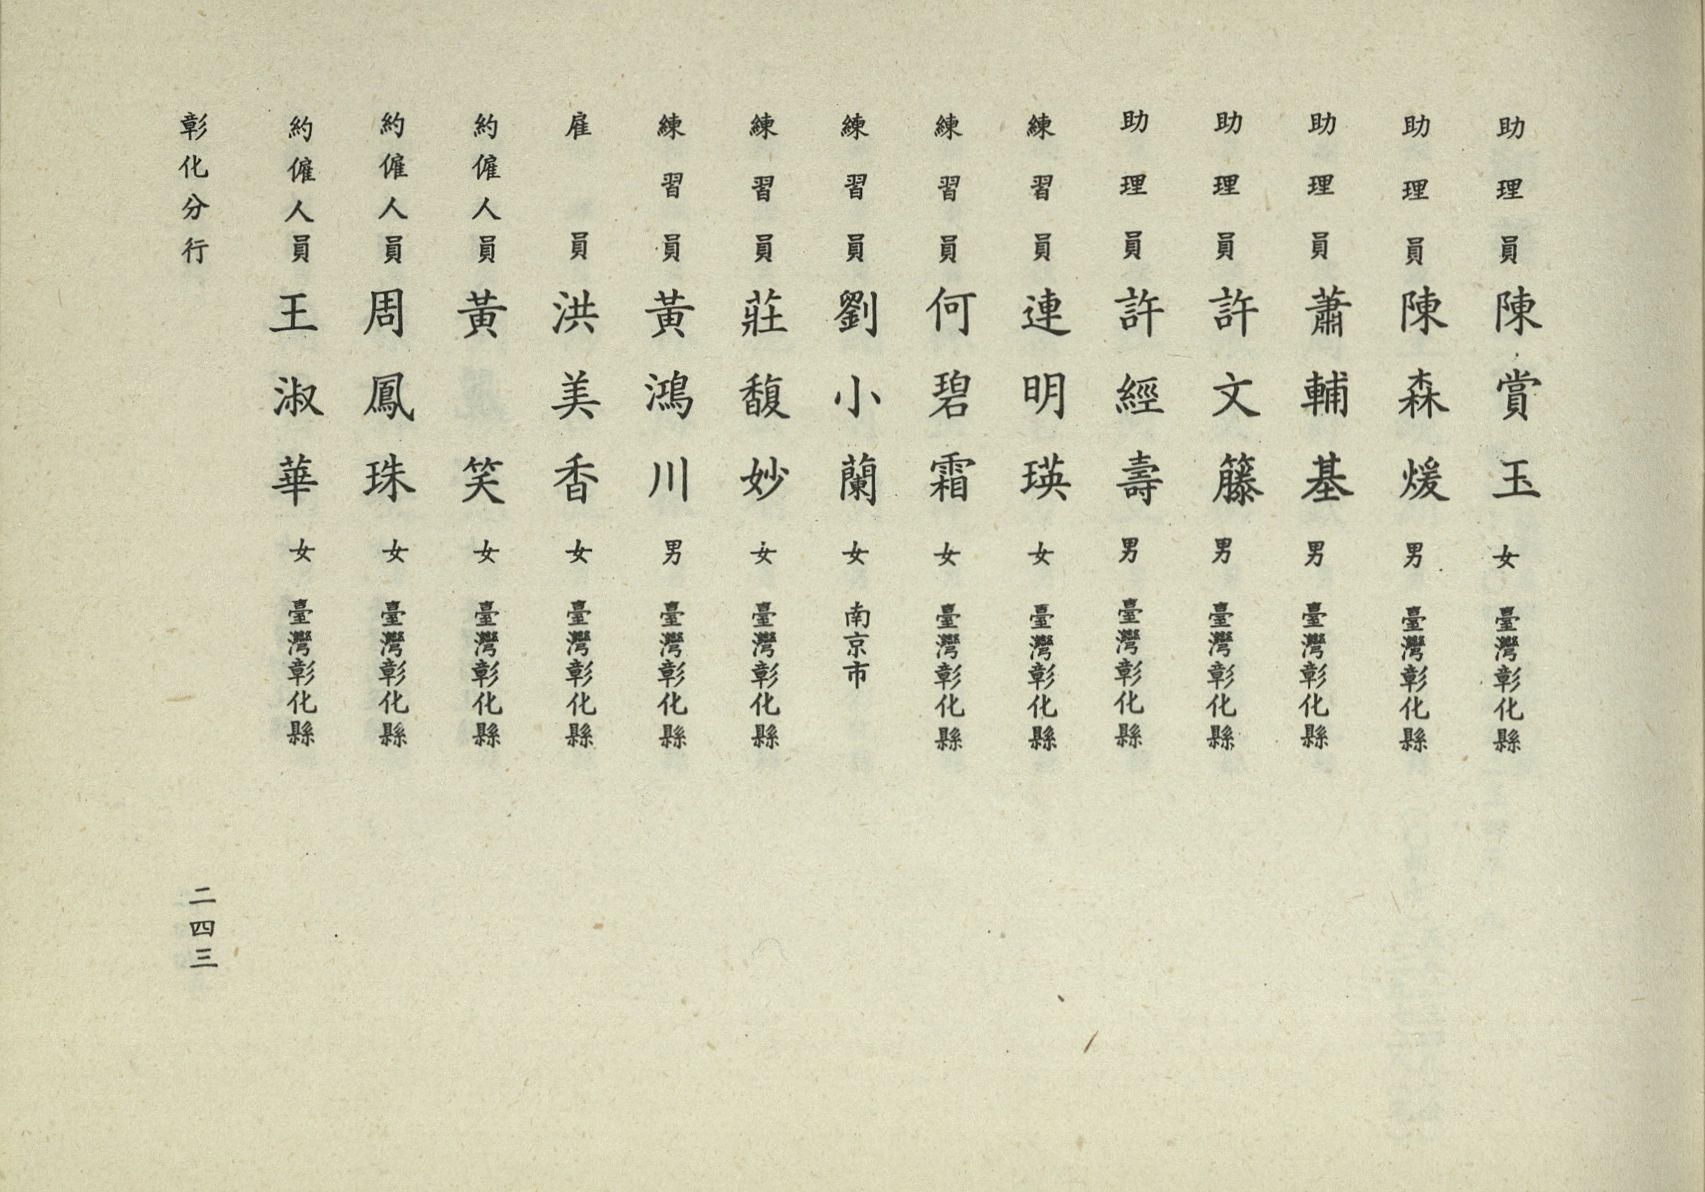 助理員陳賞玉女臺灣彰化縣
助理員陳森煖男臺灣彰化縣
助理員蕭輔基男臺灣彰化縣
助理員許文籐男臺灣彰化縣
助理員許經壽男臺灣彰化縣
練習員連明瑛女臺灣彰化縣
練習員何碧霜女臺灣彰化縣
練習員劉小蘭女南京市
練習員莊馥妙女臺灣彰化縣
練習員黃鴻川男臺灣彰化縣
雇員洪美香女臺灣彰化縣
約僱人員黃笑女臺灣彰化縣
約僱人員周鳳珠女臺灣彰化縣
約僱人員王淑華女臺灣彰化縣
彰化分行
二四三